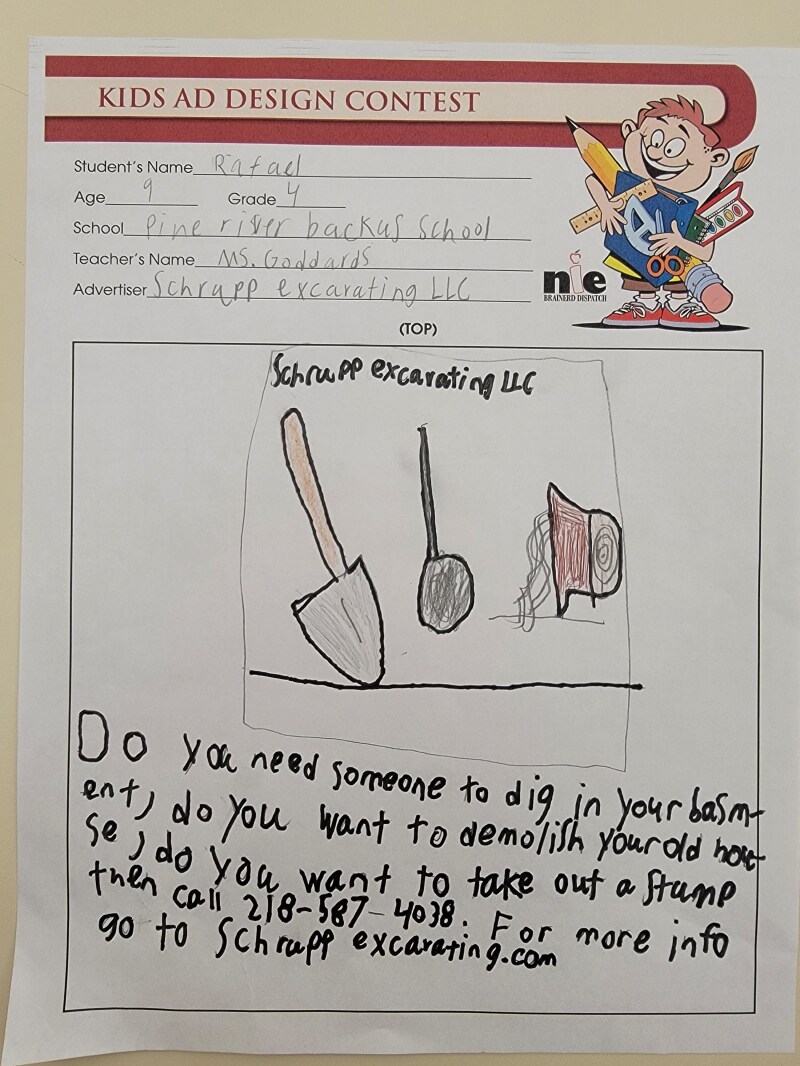 KIDS AD DESIGN CONTEST
Student's Name Rafael
Age 9 Grade 4
School Pine river backus School
Teacher's Name MS. Goddards
Advertiser Schrupp excarating LLC
nie
BRAINERD DISPATCH
(TOP)
Schrupp excarating LLC
Do you need someone to dig in your basm-
ent, do you want to demolish your old hou-
se, do you want to take out a stump
then call 218-587-4038. For more info
go to Schrupp excarating.com